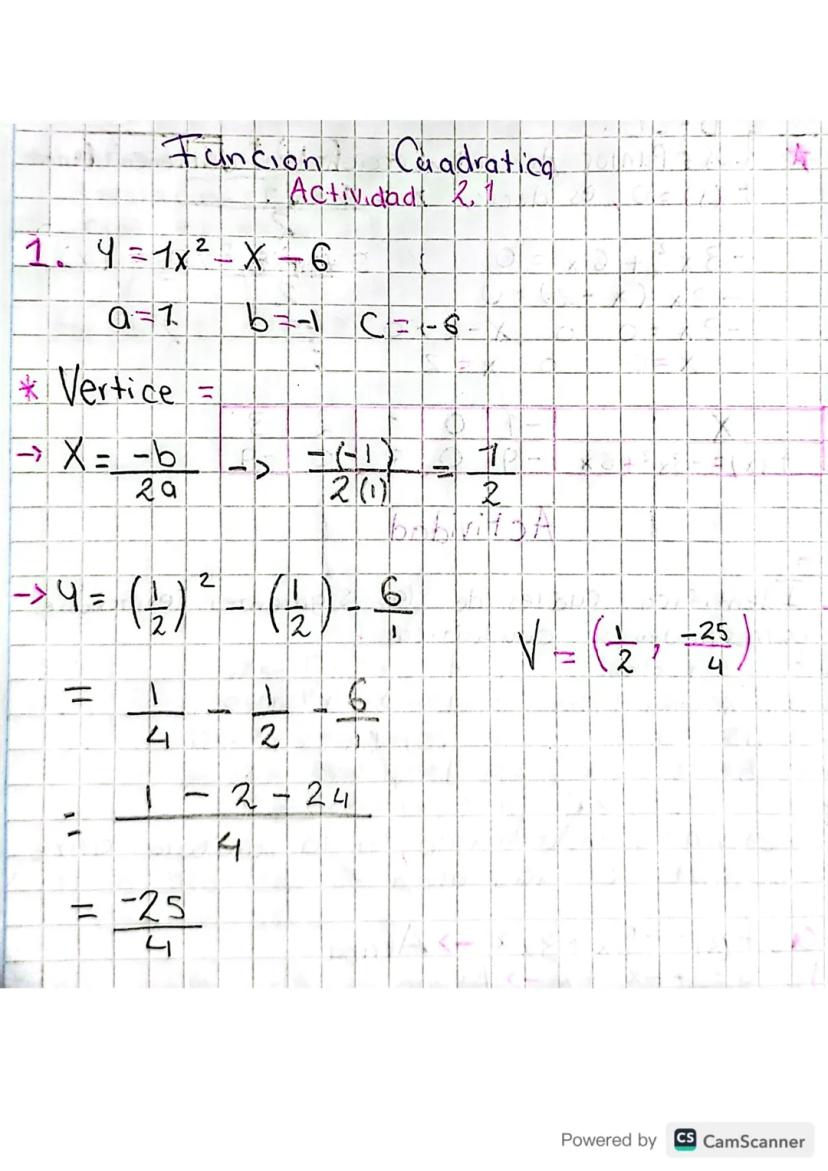 Funcion Cuadratica
Actividad 2.1
1. y = 1x² - x - 6
a=1 b=-1 c=-6
* Vertice =
→ X = -b/2a -> -(-1)/2(1) = 1/2
→ y = (1/2)² - (1/2) - 6/1
V = (1/2, -25/4)
= 1/4 - 1/2 - 6/1
= 1 - 2 - 24/4
= -25/4
Powered by CS CamScanner